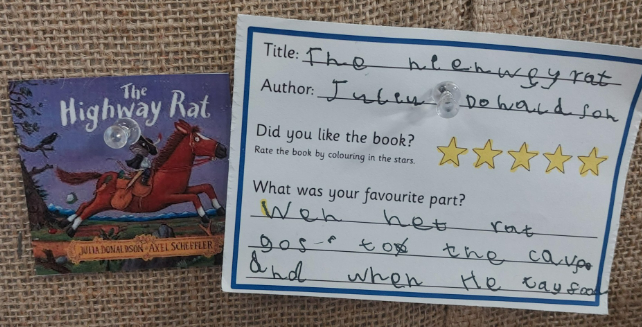 The
Highway Rat
JULIA DONALDSON AXEL SCHEFFLER
Title: The hienwey rat
Author: Juliu Donaldson
Did you like the book?
Rate the book by colouring in the stars.
What was your favourite part?
Wen het rat
gos to the cave
and when He